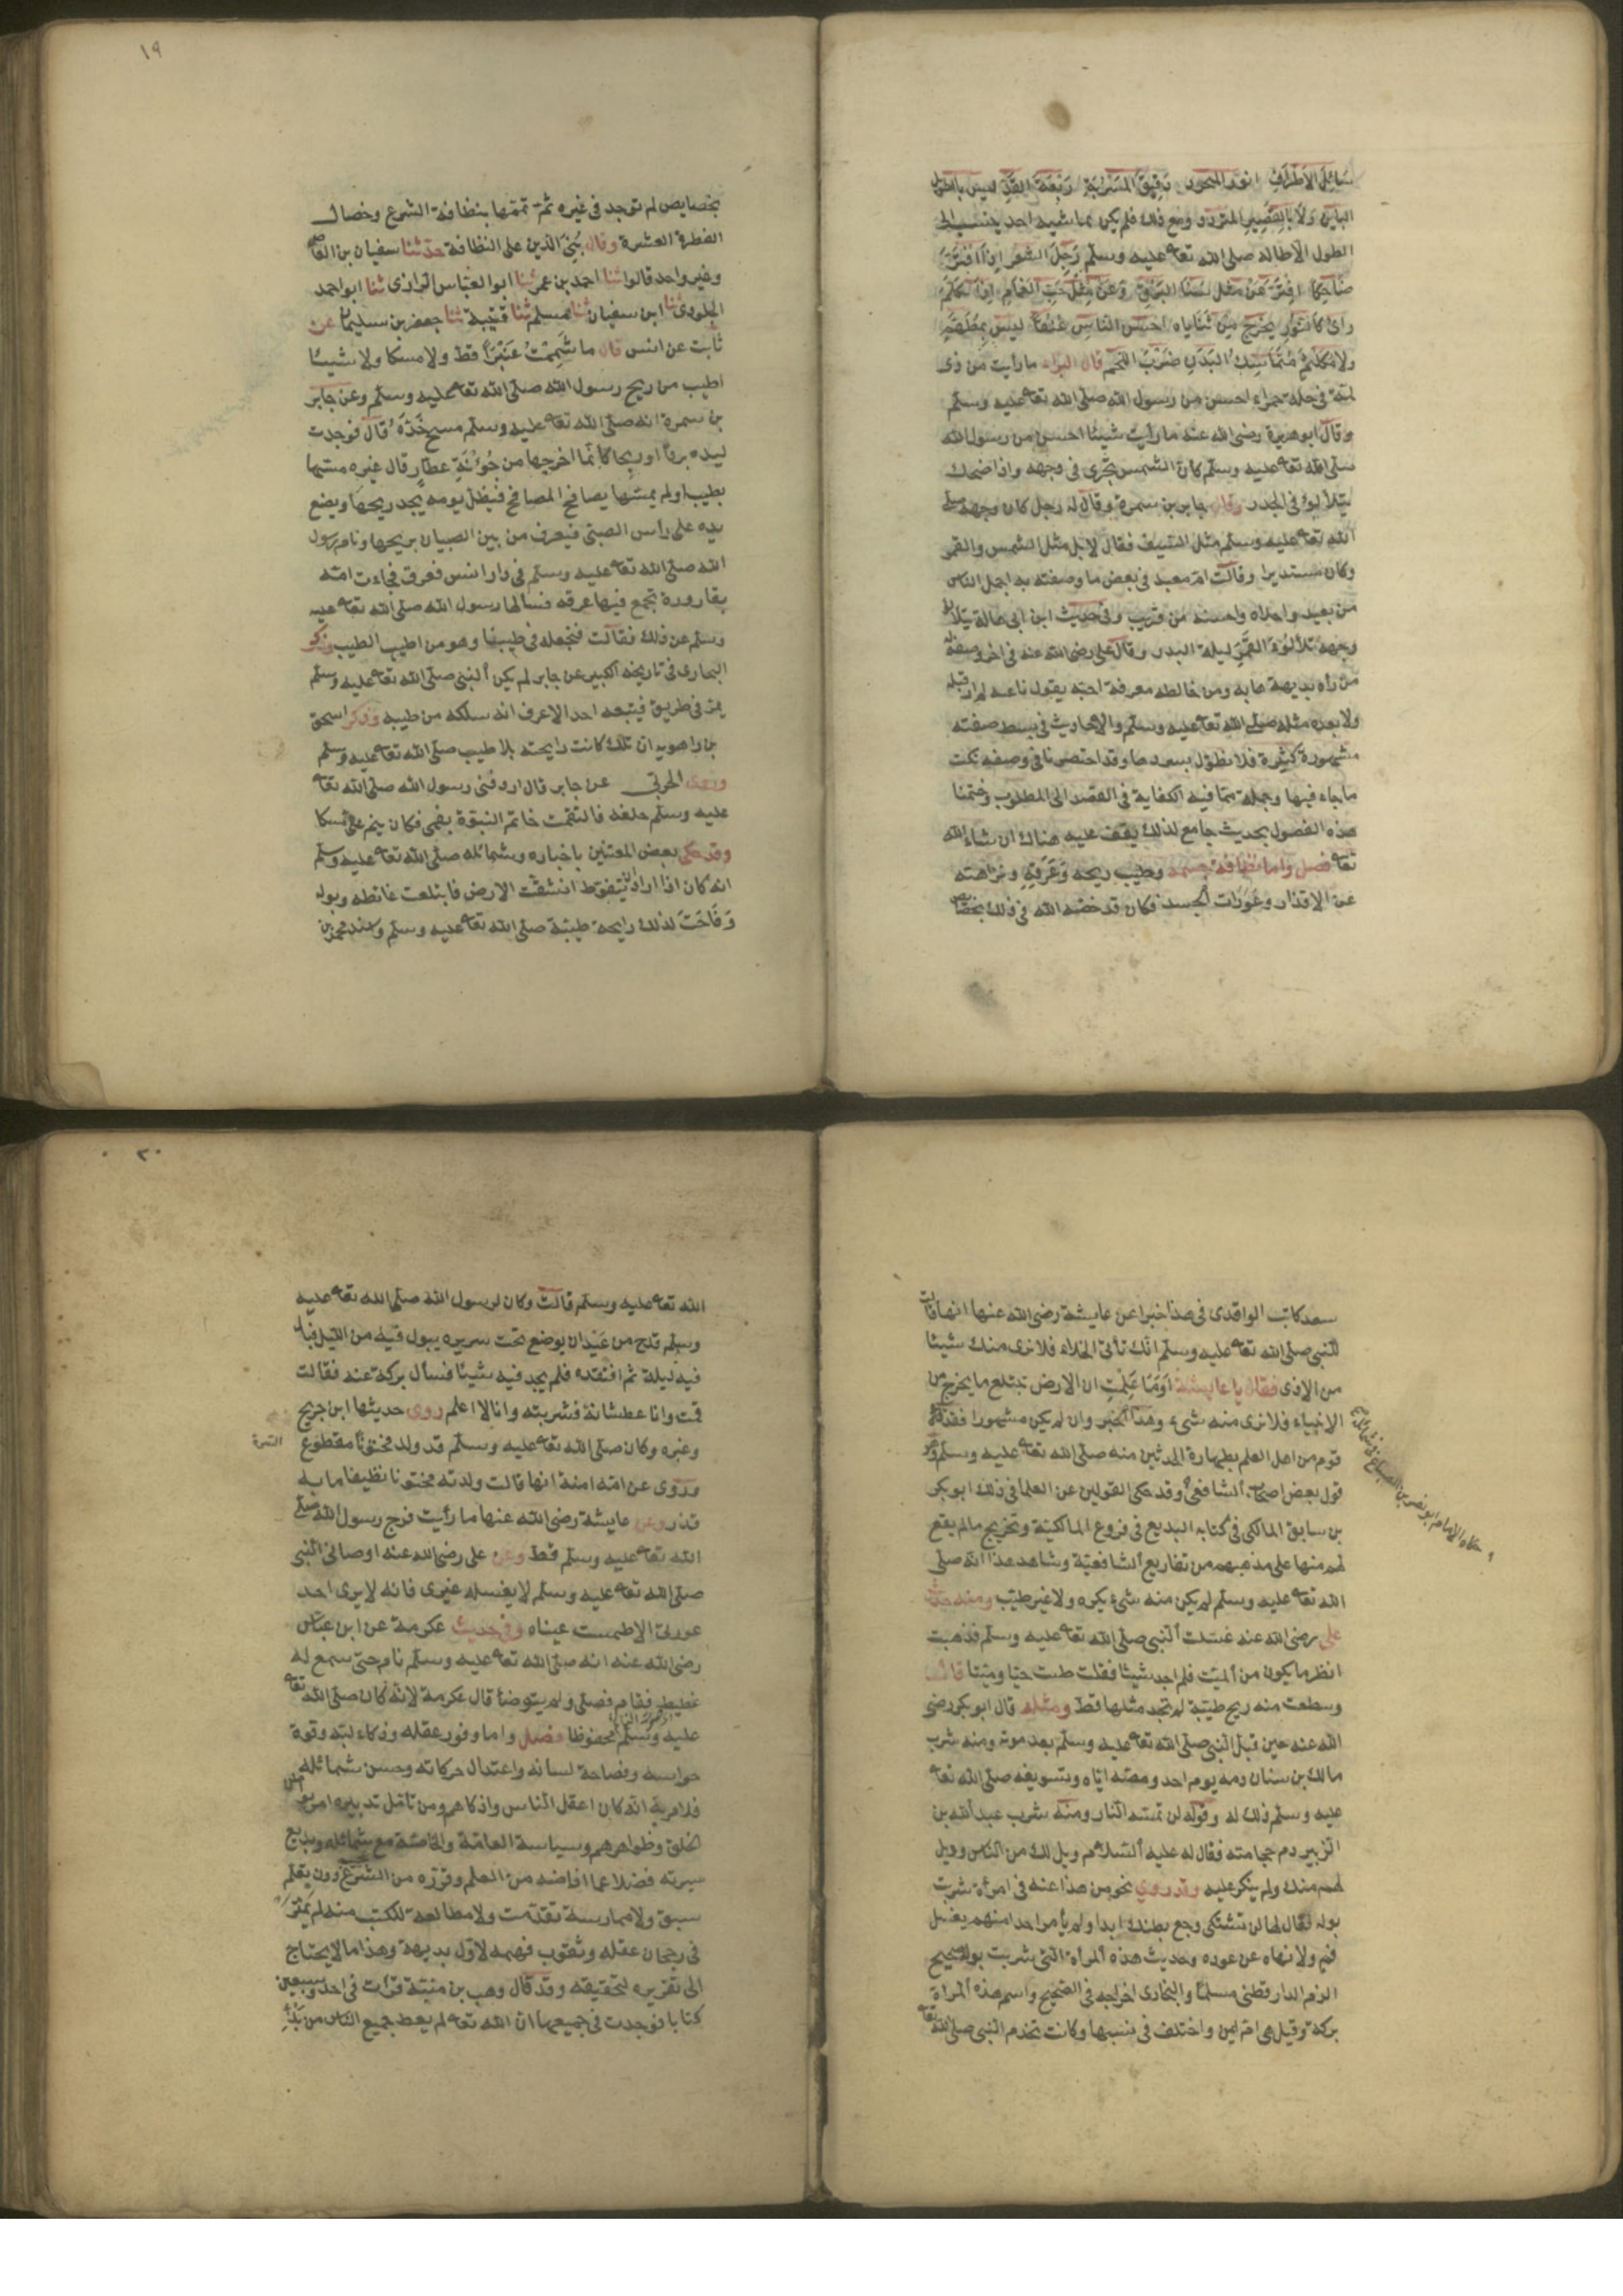 سائل الأطراف انور المتجرد دقيق المسربة ربعة القد ليس بالطويل
البائن ولا بالقصير المتردد ومع ذلك فلم يكن يماشيه احد ينسب الى
الطول الاطاله صلى الله تعا عليه وسلم رجل الشعر اذا افتر
ضاحكا افتر عن مثل سنا البرق وعن مثل حب الغمام اذا تكلم
رأى كالنور يخرج من ثناياه احسن الناس عنقا ليس بمطهم
ولا مكلثم متماسك البدن ضرب اللحم قال البراء ما رأيت من ذى
لمة في حلة حمراء احسن من رسول الله صلى الله تعا عليه وسلم
وقال ابو هريرة رضى الله عنه ما رأيت شيئا احسن من رسول الله
صلى الله تعا عليه وسلم كان الشمس تجرى فى وجهه واذا ضحك
يتلألؤ فى الجدر وقال جابر بن سمرة وقال له رجل كان وجهه صلى
الله تعا عليه وسلم مثل السيف فقال لا بل مثل الشمس والقمر
وكان مستديرا وقالت ام معبد فى بعض ما وصفته به اجمل الناس
من بعيد واحلاه واحسنه من قريب وفى حديث ابن ابى هالة يتلألؤ
وجهه تلألؤ القمر ليلة البدر وقال على رضى الله عنه فى اخر وصفه له
من رآه بديهة هابه ومن خالطه معرفة احبه يقول ناعته لم ار قبله
ولا بعده مثله صلى الله تعا عليه وسلم والاحاديث فى بسط صفته
مشهورة كثيرة فلا نطول بسردها وقد اختصرنا فى وصفه نكت
ما جاء فيها وجملة مما فيه الكفاية فى القصد الى المطلوب وختمنا
هذه الفصول بحديث جامع لذلك يقف عليه هناك ان شاء الله
تعا فصل واما نظافة جسمه وطيب ريحه وعرقه ونزاهته
عن الاقذار وعورات الجسد فكان قد خصه الله فى ذلك بخصايص
١٩
بخصايص لم توجد فى غيره ثم تممها بنظافة الشرع وخصال
الفطرة العشرة وقال بنى الدين على النظافة حدثنا سفيان بن العاصى
وغير واحد قالوا ثنا احمد بن عمر ثنا ابو العباس الرازى ثنا ابو احمد
الجلودى ثنا ابن سفيان ثنا مسلم ثنا قتيبة ثنا جعفر بن سليمان عن
ثابت عن انس قال ما شممت عنبرا قط ولا مسكا ولا شيئا
اطيب من ريح رسول الله صلى الله تعا عليه وسلم وعن جابر
بن سمرة انه صلى الله تعا عليه وسلم مسح خده قال فوجدت
ليده بردا او ريحا كأنما اخرجها من جؤنة عطار قال غيره مسها
بطيب او لم يمسها يصافح المصافح فيظل يومه يجد ريحها ويضع
يده على رأس الصبى فيعرف من بين الصبيان بريحها ونام رسول
الله صلى الله تعا عليه وسلم فى دار انس فعرق فجاءت امه
بقارورة تجمع فيها عرقه فسألها رسول الله صلى الله تعا عليه
وسلم عن ذلك فقالت فنجعله فى طيبنا وهو من اطيب الطيب وذكر
البخارى فى تاريخه الكبير عن جابر لم يكن النبى صلى الله تعا عليه وسلم
يمر فى طريق فيتبعه احد الا عرف انه سلكه من طيبه وذكر اسحق
بن راهويه ان تلك كانت رايحته بلا طيب صلى الله تعا عليه وسلم
وروى الحربى عن جابر قال اردفنى رسول الله صلى الله تعا
عليه وسلم خلفه فالتقمت خاتم النبوة بفمى فكان ينم على مسكا
وقد حكى بعض المعتنين باخباره وشمائله صلى الله تعا عليه وسلم
انه كان اذا اراد ان يتغوط انشقت الارض فابتلعت غائطه وبوله
وفاحت لذلك رايحة طيبة صلى الله تعا عليه وسلم واسند محمد بن
سعد كاتب الواقدى فى هذا خبرا عن عايشة رضى الله عنها انها قالت
للنبى صلى الله تعا عليه وسلم انك تأتى الخلاء فلا نرى منك شيئا
من الاذى فقال يا عايشة اوما علمت ان الارض تبتلع ما يخرج من
الانبياء فلا نرى منه شىء وهذا الخبر وان لم يكن مشهورا فقد قال
قوم من اهل العلم بطهارة الحدثين منه صلى الله تعا عليه وسلم وهو
قول بعض اصحاب الشافعى وقد حكى القولين عن العلما فى ذلك ابو بكر
بن سابق المالكى فى كتابه البديع فى فروع المالكية وتخريج ما لم يقع
لهم منها على مذهبهم من تفاريع الشافعية وشاهد هذا انه صلى
الله تعا عليه وسلم لم يكن منه شىء يكره ولا غير طيب ومنه حديث
على رضى الله عنه غسلت النبى صلى الله تعا عليه وسلم فذهبت
انظر ما يكون من الميت فلم اجد شيئا فقلت طبت حيا وميتا قال
وسطعت منه ريح طيبة لم تجد مثلها قط ومثله قال ابو بكر رضى
الله عنه حين قبل النبى صلى الله تعا عليه وسلم بعد موته ومنه شرب
مالك بن سنان دمه يوم احد ومصه اياه وتسويغه صلى الله تعا
عليه وسلم ذلك له وقوله لن تمسه النار ومنه شرب عبد الله بن
الزبير دم حجامته فقال له عليه السلام ويل لك من الناس وويل
لهم منك ولم ينكر عليه وقد روى نحو من هذا عنه فى امرأة شربت
بوله فقال لها لن تشتكى وجع بطنك ابدا ولم يأمر احدا منهم بغسل
فم ولا نهاه عن عوده وحديث هذه المرأة التى شربت بوله صحيح
الزم الدارقطنى مسلما والبخارى اخراجه فى الصحيح واسم هذه المراة
بركة وقيل هى ام ايمن واختلف فى نسبها وكانت تخدم النبى صلى الله تعا
حكاه الامام ابو نصر بن الصباغ فى شامله
٢٠
الله تعا عليه وسلم قالت وكان لرسول الله صلى الله تعا عليه
وسلم قدح من عيدان يوضع تحت سريره يبول فيه من الليل فبال
فيه ليلة ثم افتقده فلم يجد فيه شيئا فسأل بركة عنه فقالت
قمت وانا عطشانة فشربته وانا لا اعلم روى حديثها ابن جريج
وغيره وكان صلى الله تعا عليه وسلم قد ولد مختونا مقطوع
السرة
وروى عن امه امنة انها قالت ولدته مختونا نظيفا ما به
قذر وعن عايشة رضى الله عنها ما رأيت فرج رسول الله صلى
الله تعا عليه وسلم قط وعن على رضى الله عنه اوصانى النبى
صلى الله تعا عليه وسلم لا يغسله غيرى فانه لا يرى احد
عورتى الا طمست عيناه وفى حديث عكرمة عن ابن عباس
رضى الله عنه انه صلى الله تعا عليه وسلم نام حتى سمع له
غطيط فقام فصلى ولم يتوضأ قال عكرمة لانه كان صلى الله تعا
عليه وسلم محفوظا فصل واما وفور عقله وذكاء لبه وقوة
حواسه وفصاحة لسانه واعتدال حركاته وحسن شمائله
فلا مرية انه كان اعقل الناس واذكاهم ومن تأمل تدبيره امر بواطن
الخلق وظواهرهم وسياسة العامة والخاصة مع شمائله وبديع
سيرته فضلا عما افاضه من العلم وقرره من الشرع دون تعلم
سبق ولا ممارسة تقدمت ولا مطالعة للكتب منه لم يمتر
فى رجحان عقله وثقوب فهمه لاول بديهة وهذا ما لا يحتاج
الى تقريره لتحقيقه وقد قال وهب بن منبه قرأت فى احد وسبعين
كتابا فوجدت فى جميعها ان الله تعا لم يعط جميع الناس من بدء